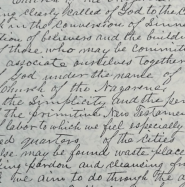 ing clear leader of God to the C
in the conversion of Sinn
tion of believers and the build
of those who may be commit
associate ourselves togeth
of God under the name of
Church of the Nazarene
the Simplicity and the pe
the primitive New Testamen
labor to which we feel especially
ed quarters of the cities
be may be found waste place
pardon and cleansing
we aim to do through the a